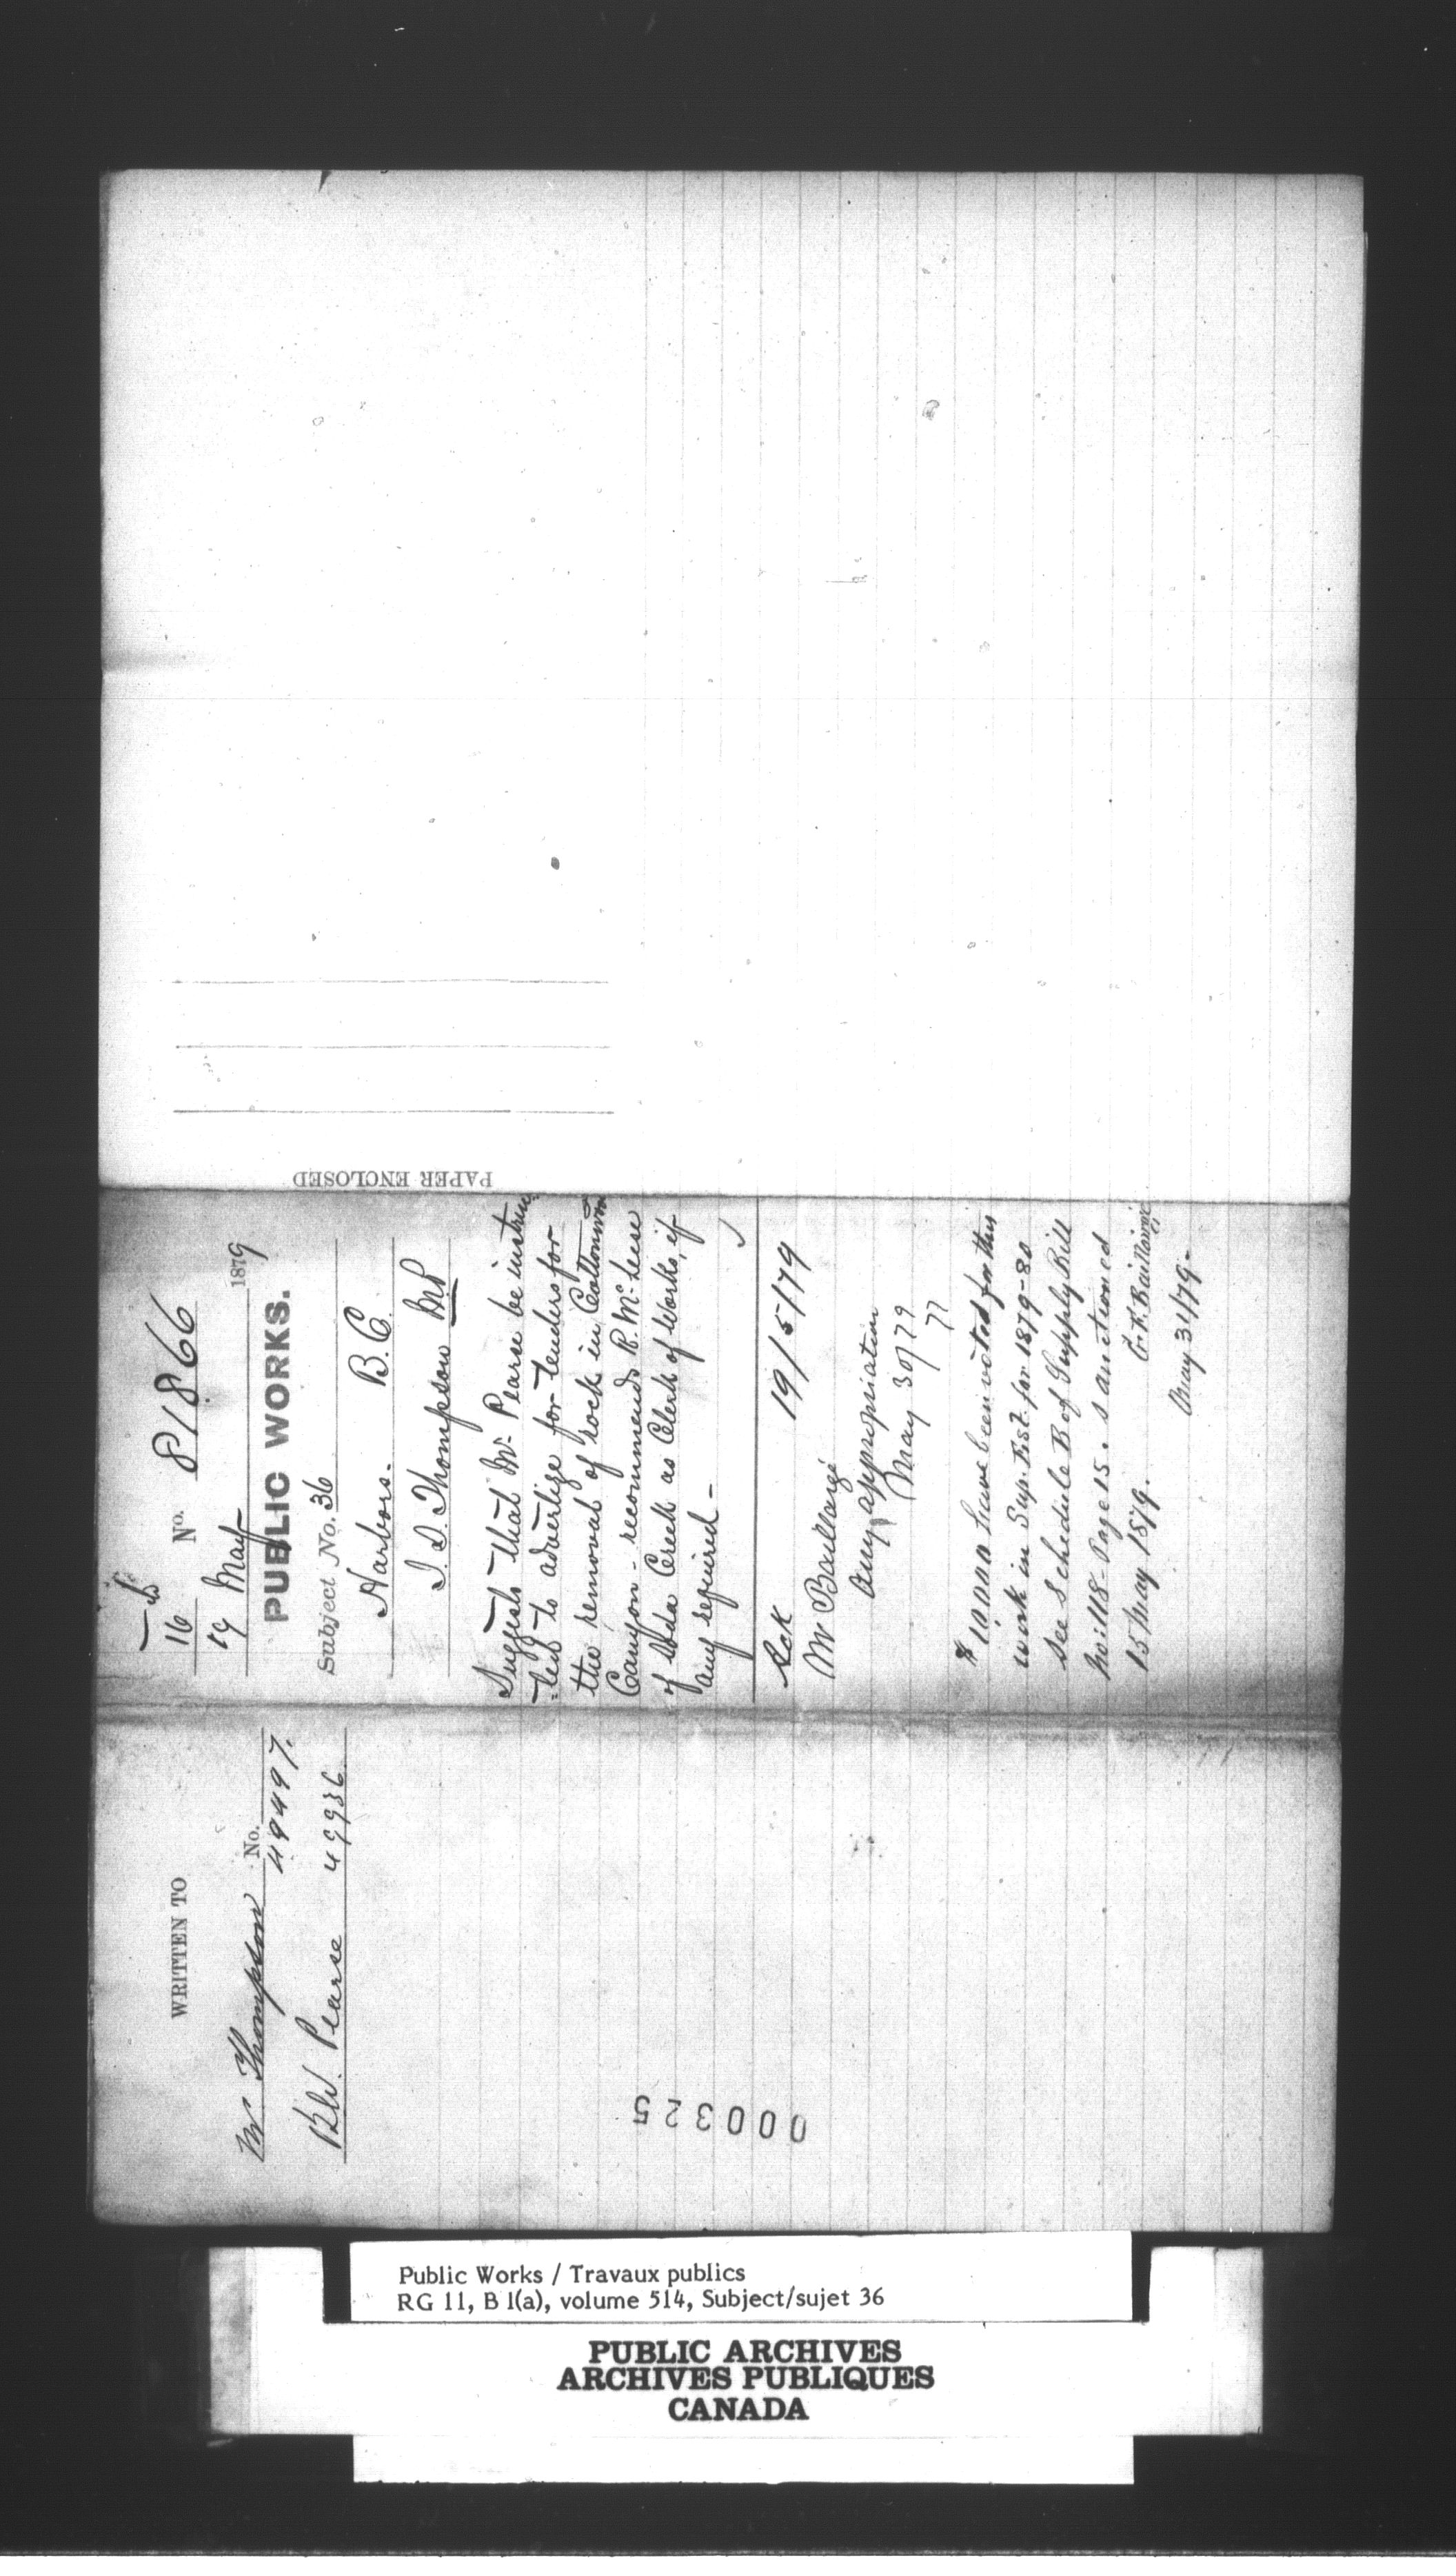 16 No. 81866
19 May 1879
PUBLIC WORKS.
Subject No. 36
Harbors. B.C.
J. S. Thompson MP
Suggests that Mr. Pearse be instruc
=ted to advertize for tenders for
the removal of rock in Cottonwood
Canyon - recommends R. McLeese
of Soda Creek as Clerk of Works, if
any required -
Ack 19/5/79
Mr Baillairgé
any appropriation
May 30/79
$10,000 have been voted for this
work in Sup. Est. for 1879-80
See Schedule B of Supply Bill
No: 118 - Page 15. Sanctioned
15 May 1879. G. F. Baillairgé
May 31/79 -
PAPER ENCLOSED
WRITTEN TO
No.
Mr Thompson 49497.
B.W. Pearse 49936
000325
Public Works / Travaux publics
RG 11, B 1(a), volume 514, Subject/sujet 36
PUBLIC ARCHIVES
ARCHIVES PUBLIQUES
CANADA